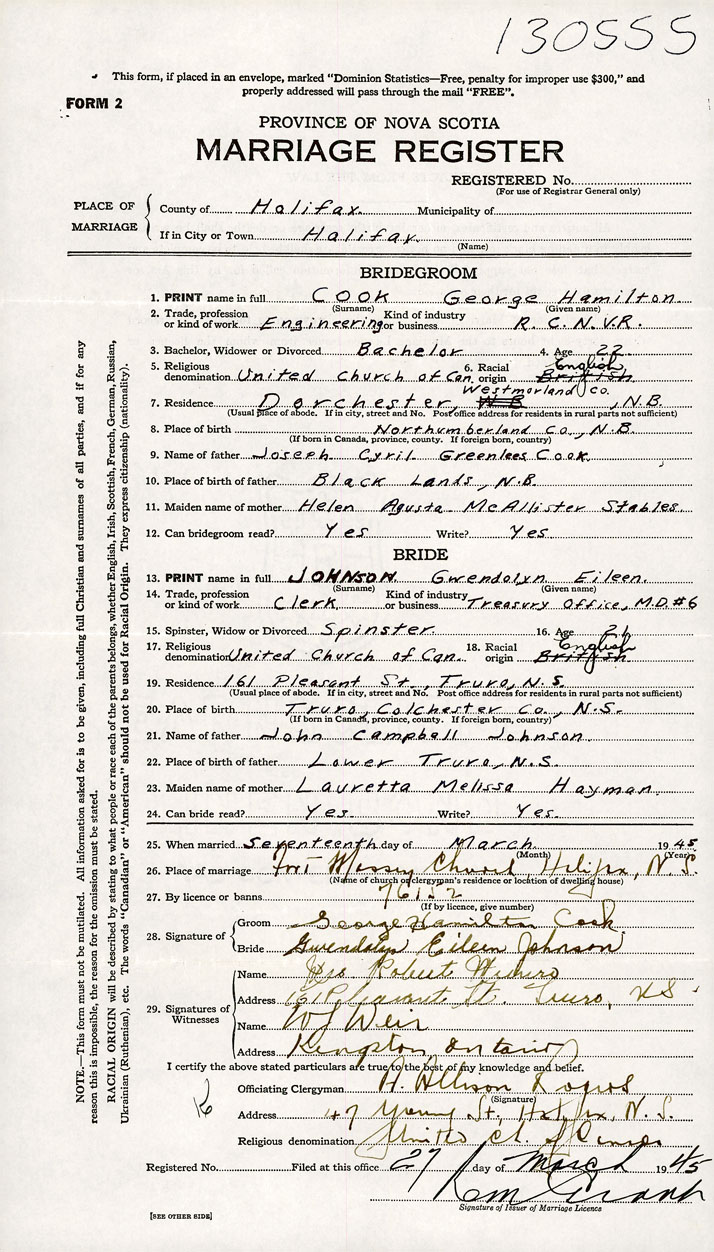 130555
This form, if placed in an envelope, marked “Dominion Statistics—Free, penalty for improper use $300,” and
properly addressed will pass through the mail “FREE”.
FORM 2
PROVINCE OF NOVA SCOTIA
MARRIAGE REGISTER
REGISTERED No.
(For use of Registrar General only)
PLACE OF MARRIAGE
County of Halifax. Municipality of
If in City or Town Halifax.
(Name)
BRIDEGROOM
1. PRINT name in full COOK George Hamilton.
(Surname) (Given name)
2. Trade, profession or kind of work Engineering Kind of industry or business R.C.N.V.R.
3. Bachelor, Widower or Divorced Bachelor 4. Age 22
5. Religious denomination United Church of Can. 6. Racial origin English British
Westmorland Co.
7. Residence Dorchester, N.B , N.B.
(Usual place of abode. If in city, street and No. Post office address for residents in rural parts not sufficient)
8. Place of birth Northumberland Co., N.B.
(If born in Canada, province, county. If foreign born, country)
9. Name of father Joseph Cyril Greenlees Cook.
10. Place of birth of father Black Lands, N.B.
11. Maiden name of mother Helen Agusta McAllister Stables.
12. Can bridegroom read? Yes Write? Yes.
BRIDE
13. PRINT name in full JOHNSON. Gwendolyn Eileen.
(Surname) (Given name)
14. Trade, profession or kind of work Clerk Kind of industry or business Treasury Office, M.D.#6
15. Spinster, Widow or Divorced Spinster. 16. Age 21
17. Religious denomination United Church of Can. 18. Racial origin English British
19. Residence 161 Pleasant St., Truro, N.S.
(Usual place of abode. If in city, street and No. Post office address for residents in rural parts not sufficient)
20. Place of birth Truro, Colchester Co., N.S.
(If born in Canada, province, county. If foreign born, country)
21. Name of father John Campbell Johnson.
22. Place of birth of father Lower Truro, N.S.
23. Maiden name of mother Lauretta Melissa Hayman.
24. Can bride read? Yes. Write? Yes.
25. When married Seventeenth day of March. 1945
(Month) (Year)
26. Place of marriage Fort Massey Church, Halifax, N.S.
(Name of church or clergyman's residence or location of dwelling house)
27. By licence or banns 76152
(If by licence, give number)
28. Signature of
Groom George Hamilton Cook.
Bride Gwendolyn Eileen Johnson
29. Signatures of Witnesses
Name Mrs. Robert
Address 161 Pleasant St. Truro, N.S.
Name W J Weir
Address Kingston Ontario
I certify the above stated particulars are true to the best of my knowledge and belief.
Officiating Clergyman H. Allison
(Signature)
Address 147 Young St., Halifax, N.S.
Religious denomination United Ch. of Canada
Registered No. Filed at this office 27 day of March 1945
Signature of Issuer of Marriage Licence
[SEE OTHER SIDE]
NOTE.—This form must not be mutilated. All information asked for is to be given, including full Christian and surnames of all parties, and if for any
reason this is impossible, the reason for the omission must be stated.
RACIAL ORIGIN will be described by stating to what people or race each of the parents belongs, whether English, Irish, Scottish, French, German, Russian,
Ukrainian (Ruthenian), etc. The words “Canadian” or “American” should not be used for Racial Origin. They express citizenship (nationality).